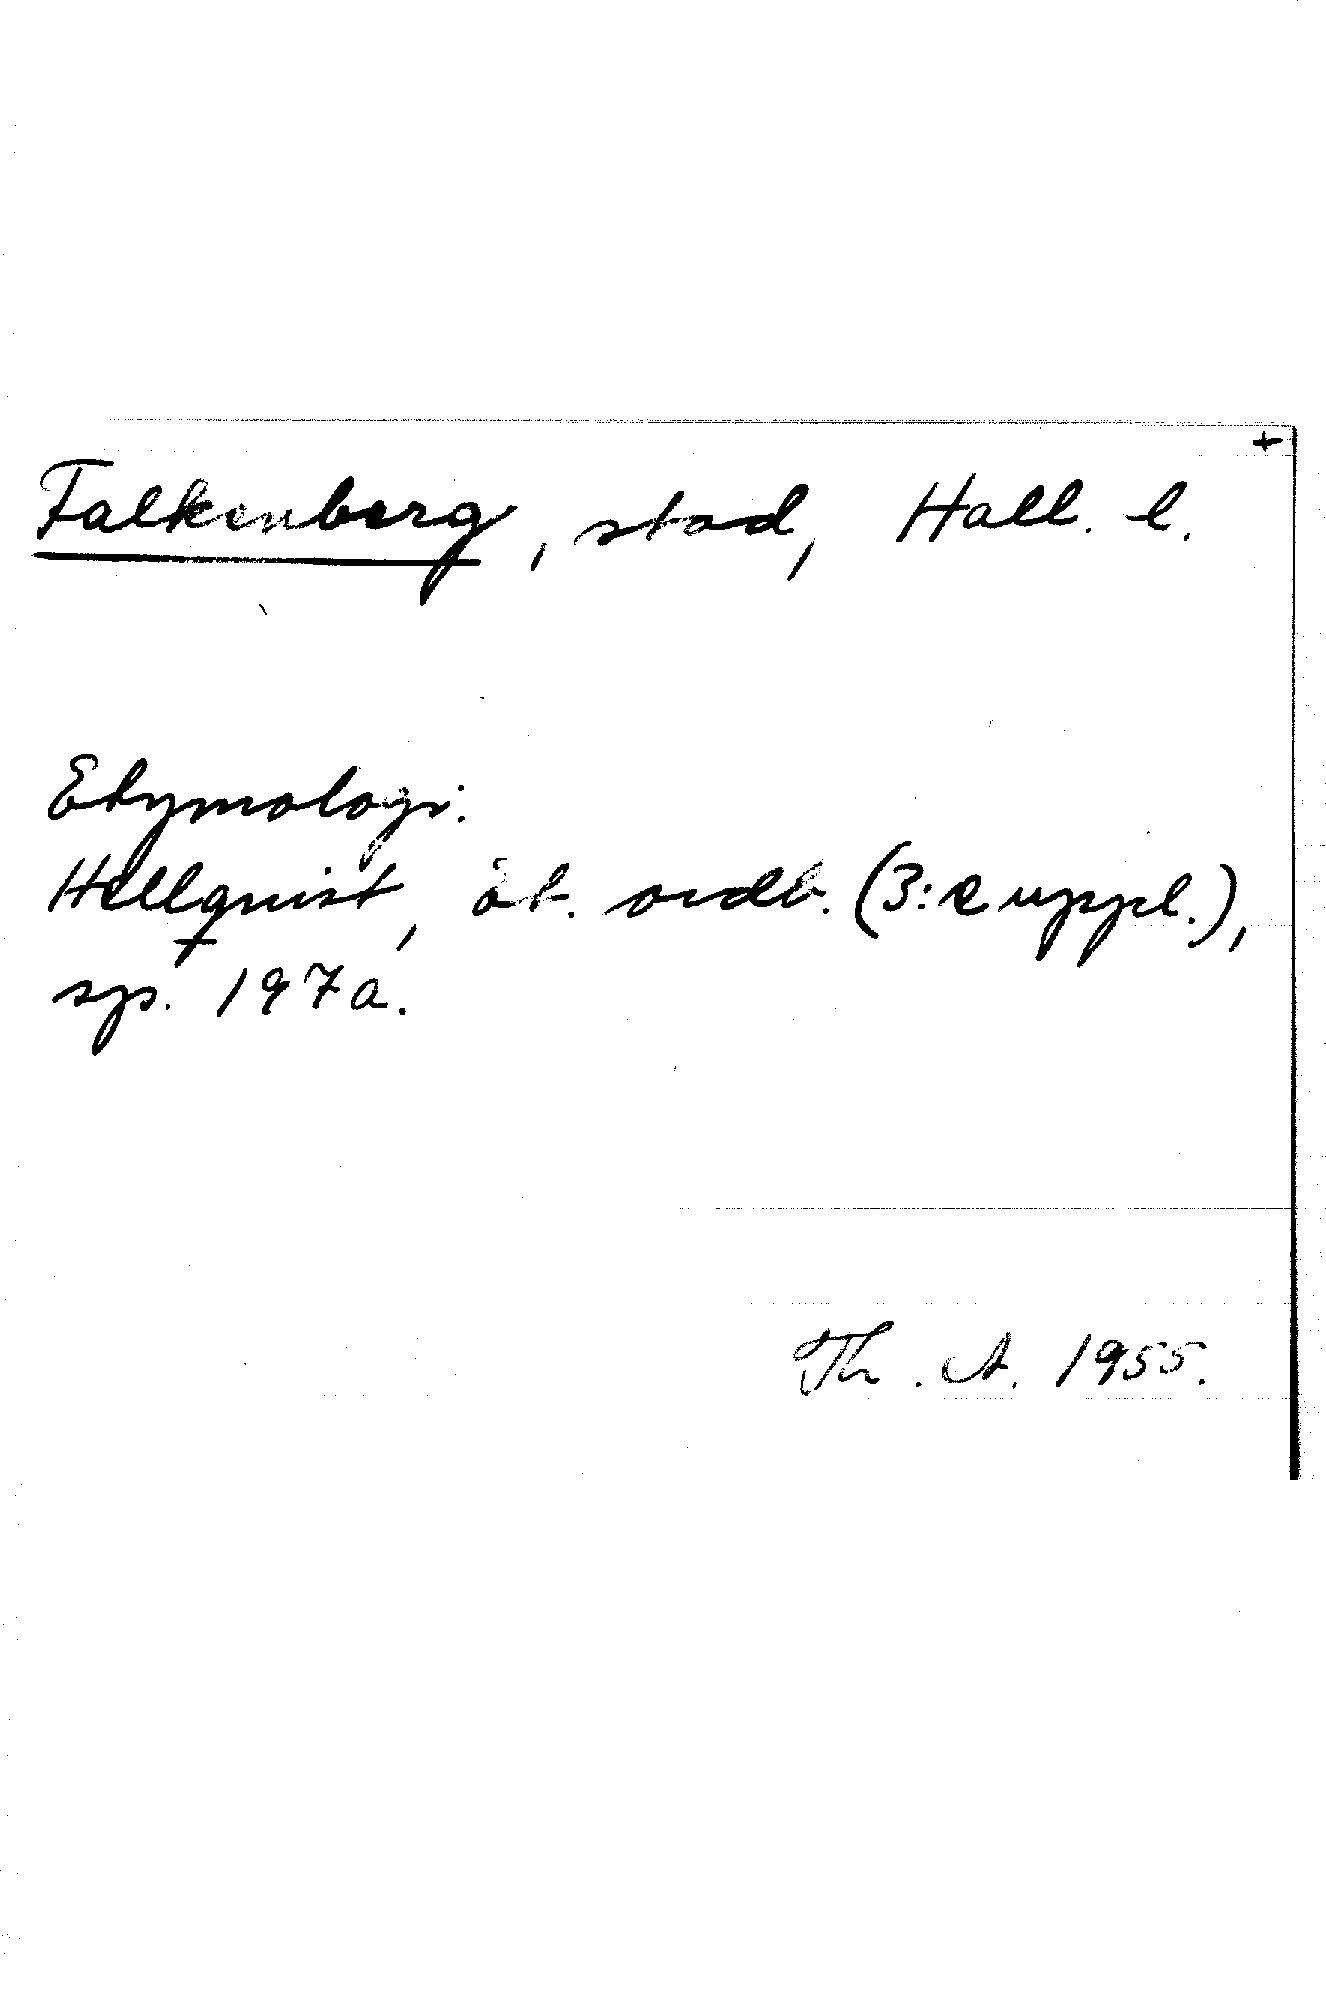 +
Falkenberg, stad, Hall. l.
Etymologi.
Hellquist, et. ordb. (3:e uppl.),
sp. 197a.
Th. A. 1955.